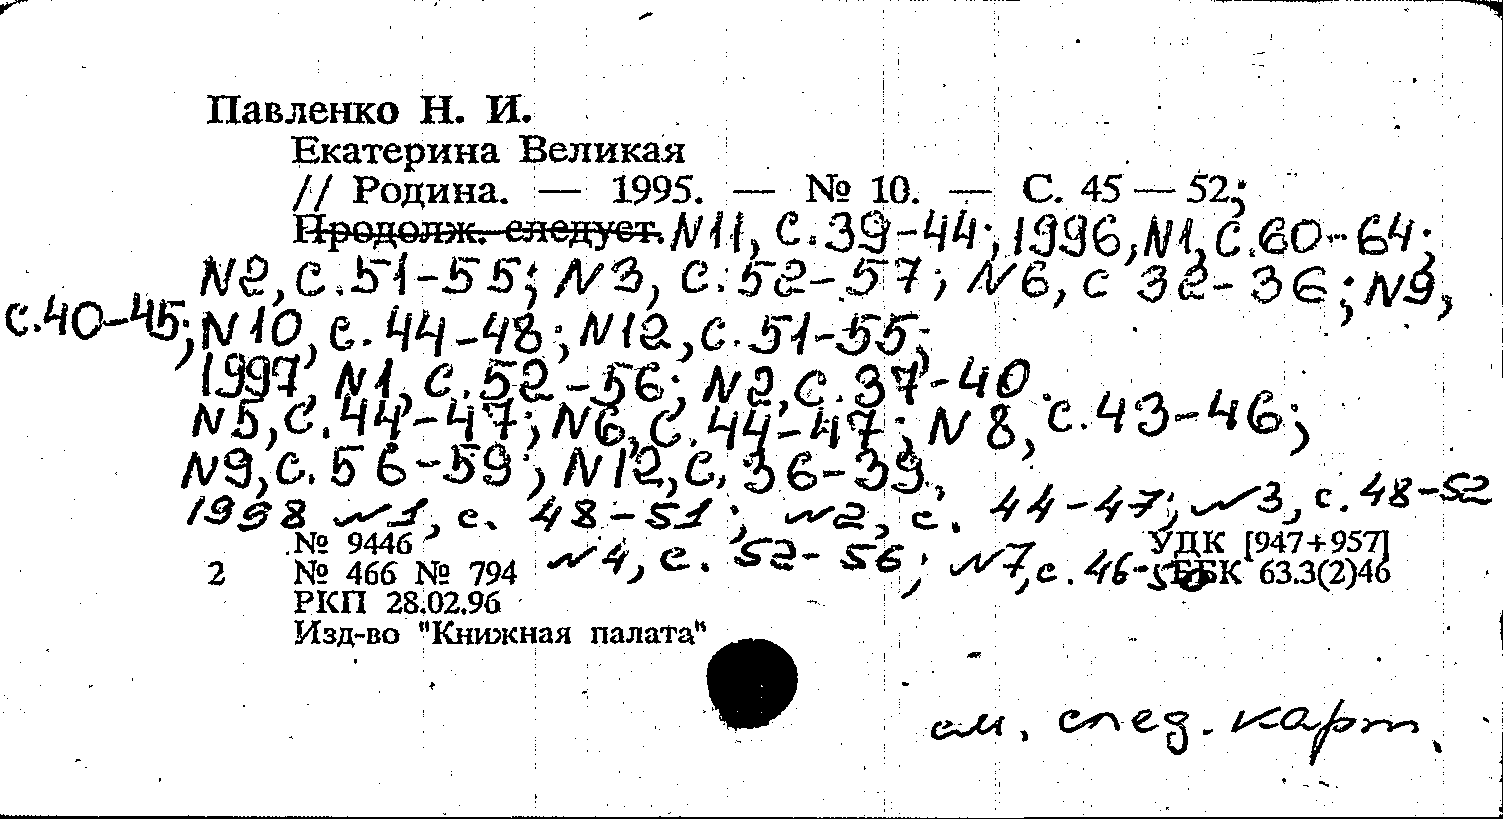 Павленко Н. И.
Екатерина Великая
// Родина. — 1995. — № 10. — С. 45 — 52.;
Продолж. следует. N11, с.39-44; 1996, N1, с.60-64;
N2, с.51-55; N3, с.52-57; N6, с 32-36; N9,
с.40-45; N10, с.44-48; N12, с.51-55;
1997, N1, с.52-56; N2, с.37-40.
N5, с.44-47; N6, с.44-47; N8, с.43-46;
N9, с.56-59; N12, с.36-39,
1998 N1, с. 48-51; N2, с. 44-47; N3, с.48-52
N4, с. 52-56; N7, с.46-50
№ 9446 УДК [947+957]
2 № 466 № 794 ББК 63.3(2)46
РКП 28.02.96
Изд-во "Книжная палата"
см. след. карт.